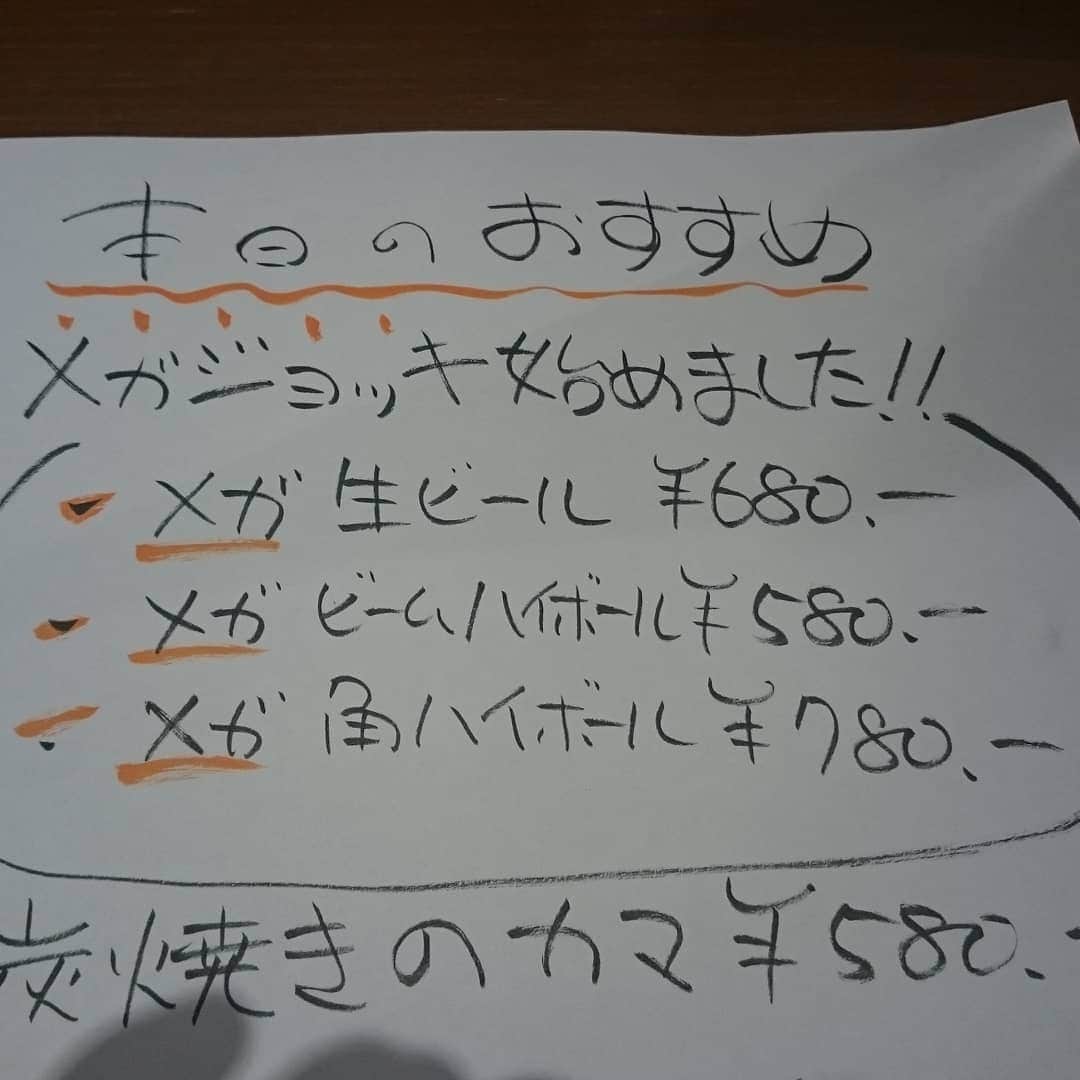 本日のおすすめ
メガジョッキ始めました!!
メガ 生ビール ¥680.ー
メガ ビームハイボール ¥580.ー
メガ 角ハイボール ¥780.ー
炭焼きのカマ ¥580.-